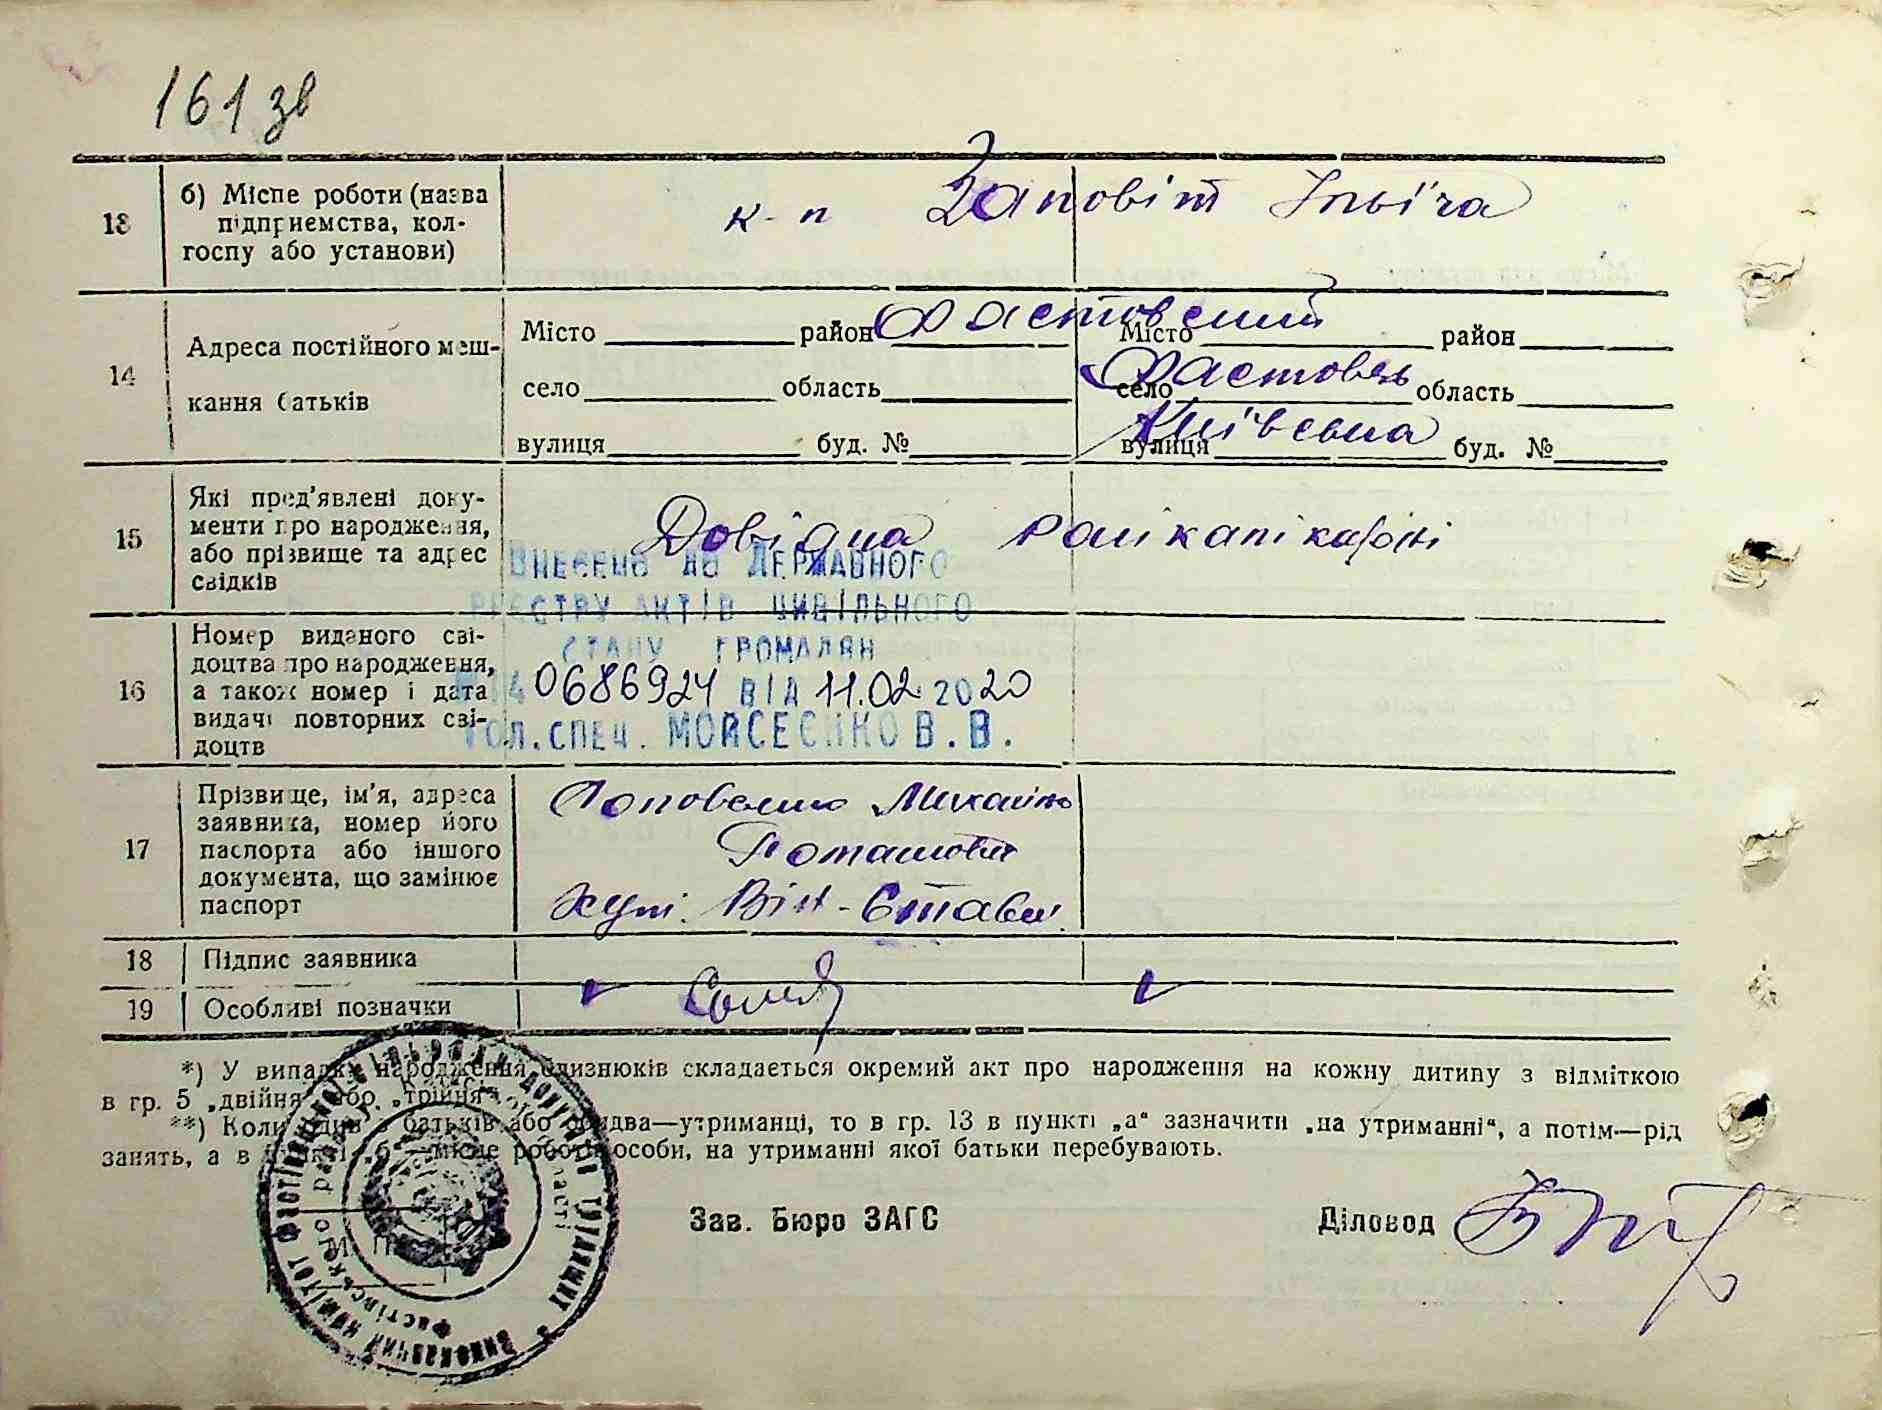 161 зв
13
б) Місце роботи (назва
підприємства, кол-
госпу або установи)
к-п Заповіт Ілліча
14
Адреса постійного меш-
кання батьків
Місто район Фастовский
село область
вулиця буд. №
Місто район
село Фастовець область
вулиця Київська буд. №
15
Які пред'явлені доку-
менти про народження,
або прізвище та адрес
свідків
Довідка
16
Номер виданого сві-
доцтва про народження,
а також номер і дата
видачі повторних сві-
доцтв
ВНЕСЕНО ДО ДЕРЖАВНОГО
РЕЄСТРУ АКТІВ ЦИВІЛЬНОГО
СТАНУ ГРОМАДЯН
0686924 ВІД 11.02.2020
ГОЛ. СПЕЦ. МОЙСЕЄНКО В. В.
17
Прізвище, ім'я, адреса
заявника, номер його
паспорта або іншого
документа, що замінює
паспорт
Михайло
18
Підпис заявника
19
Особливі позначки
*) У випадку народження близнюків складається окремий акт про народження на кожну дитину з відміткою
в гр. 5 „двійня" або „трійня".
**) Коли один з батьків або обидва—утриманці, то в гр. 13 в пункті „а" зазначити „на утриманні", а потім—рід
занять, а в пункті „б"—місце роботи особи, на утриманні якої батьки перебувають.
Зав. Бюро ЗАГС
Діловод